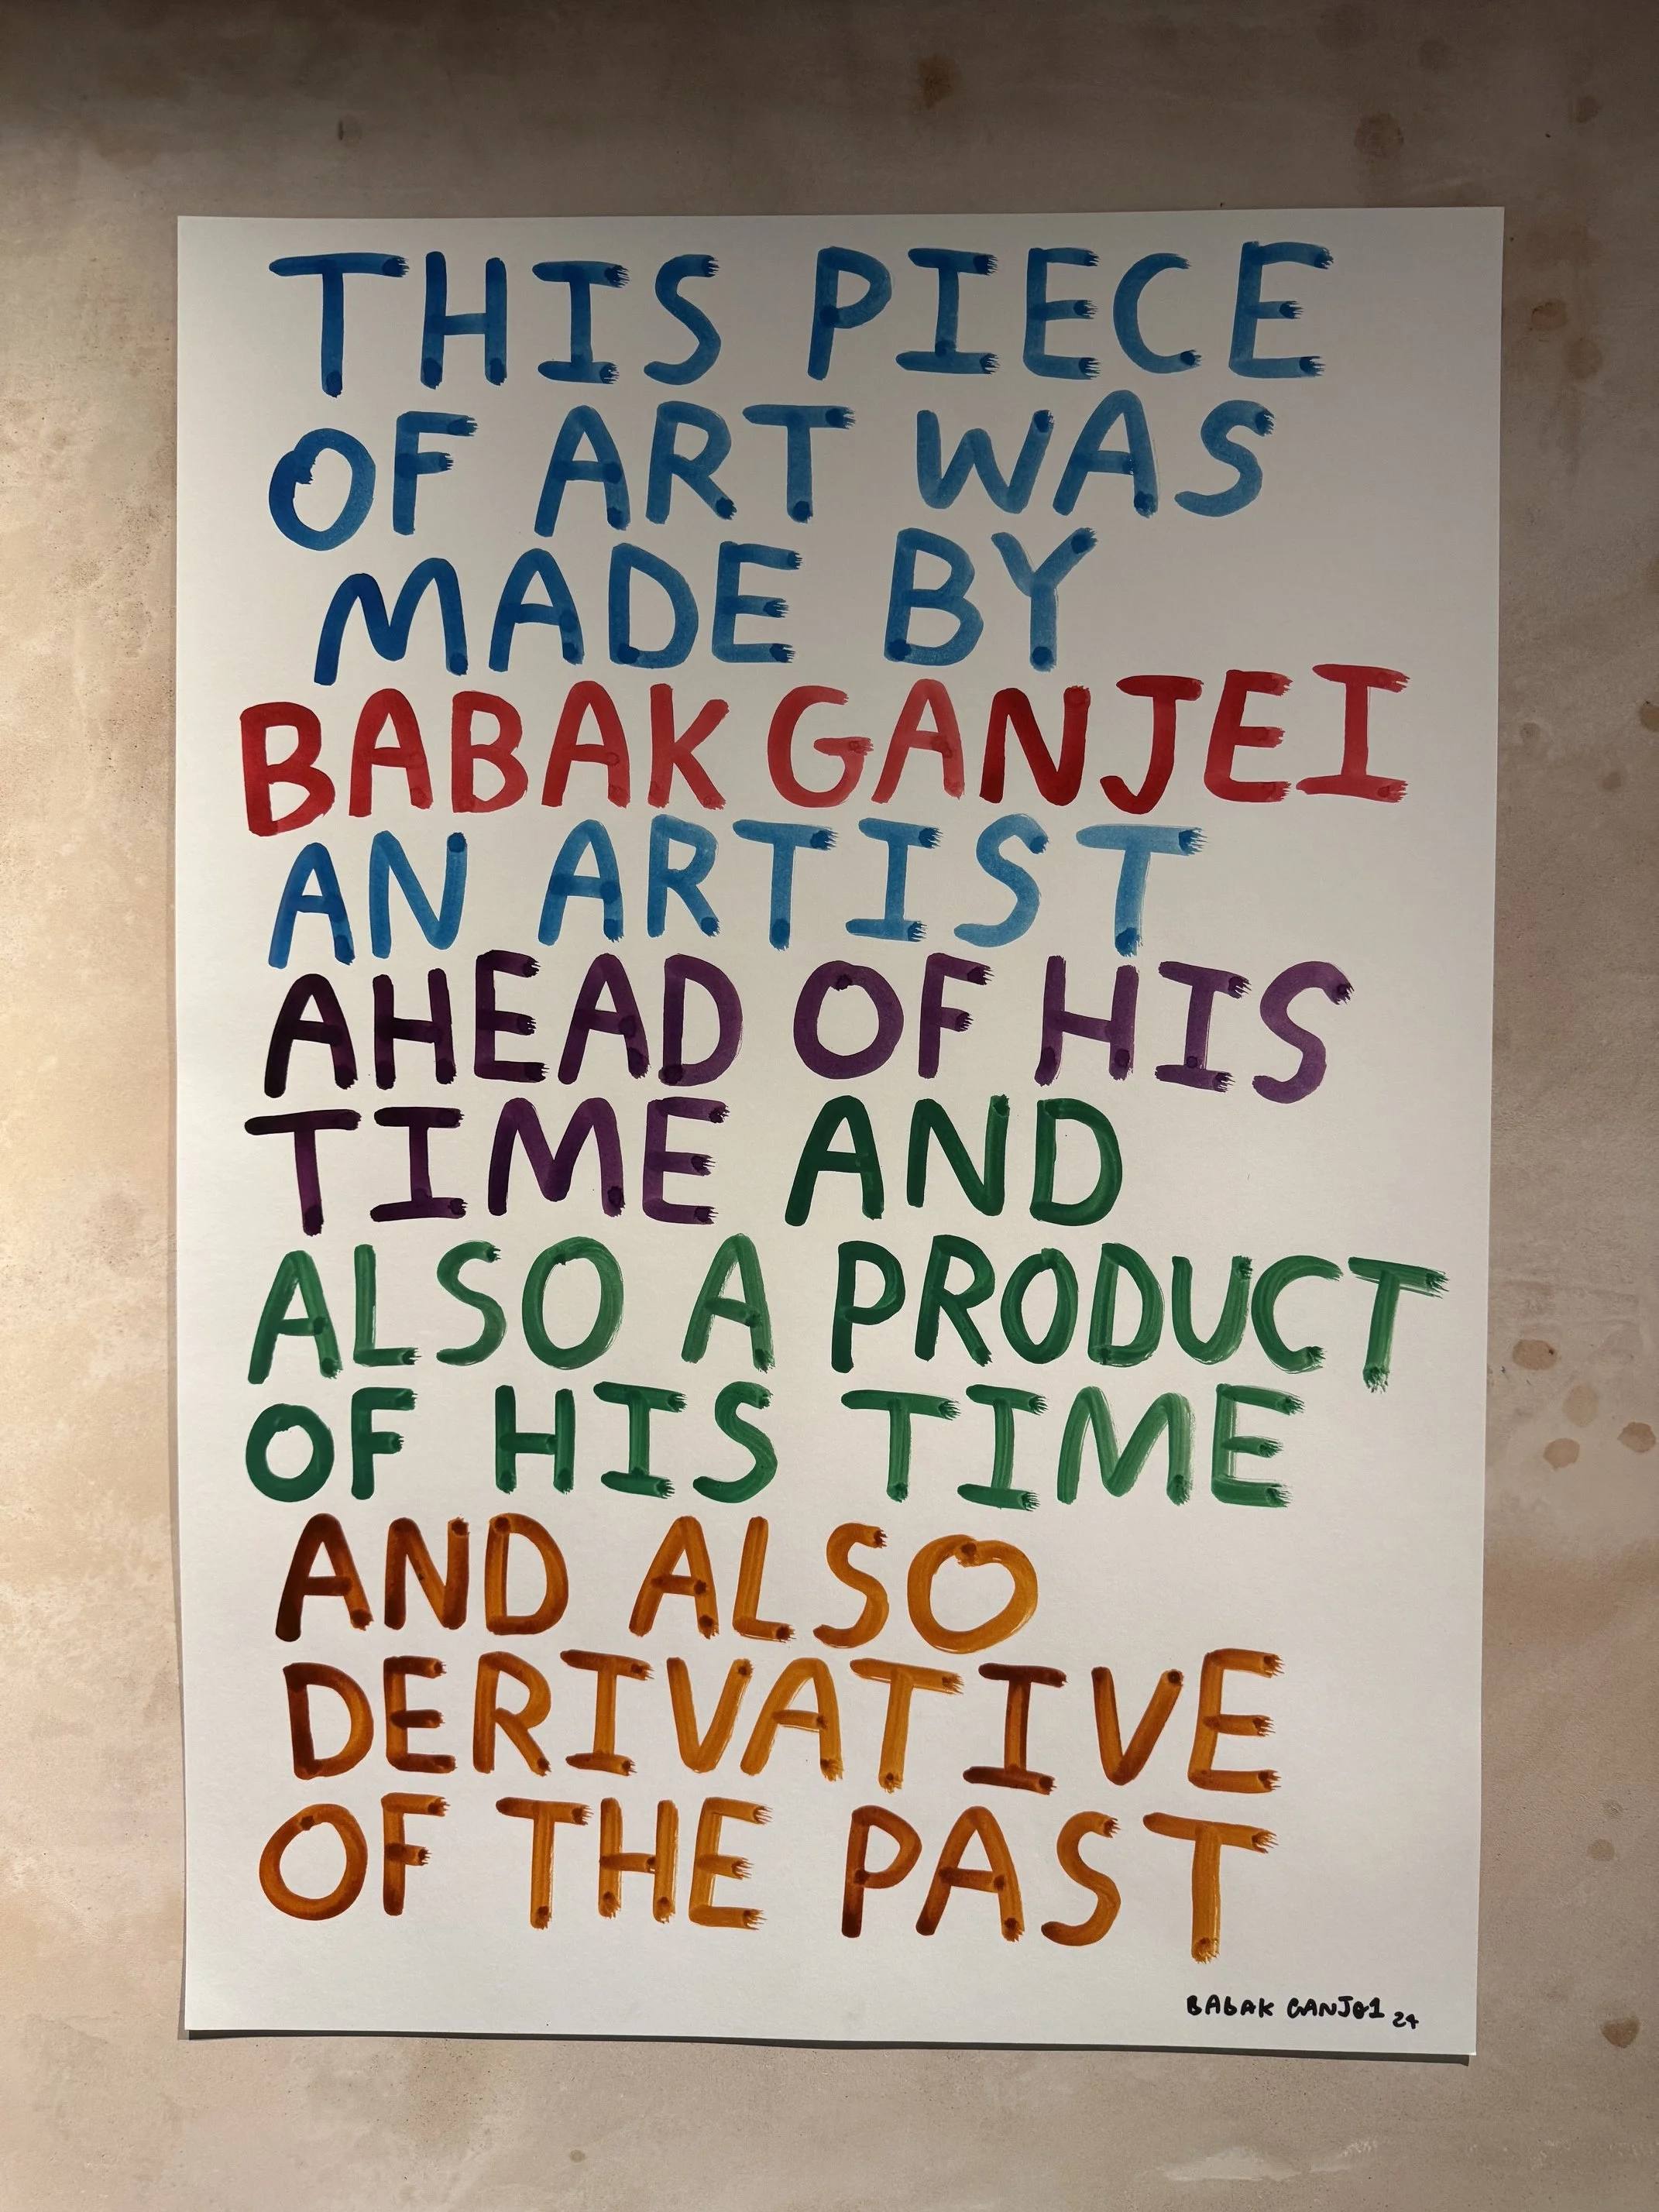 THIS PIECE
OF ART WAS
MADE BY
BABAK GANJEI
AN ARTIST
AHEAD OF HIS
TIME AND
ALSO A PRODUCT
OF HIS TIME
AND ALSO
DERIVATIVE
OF THE PAST
BABAK GANJEI 24